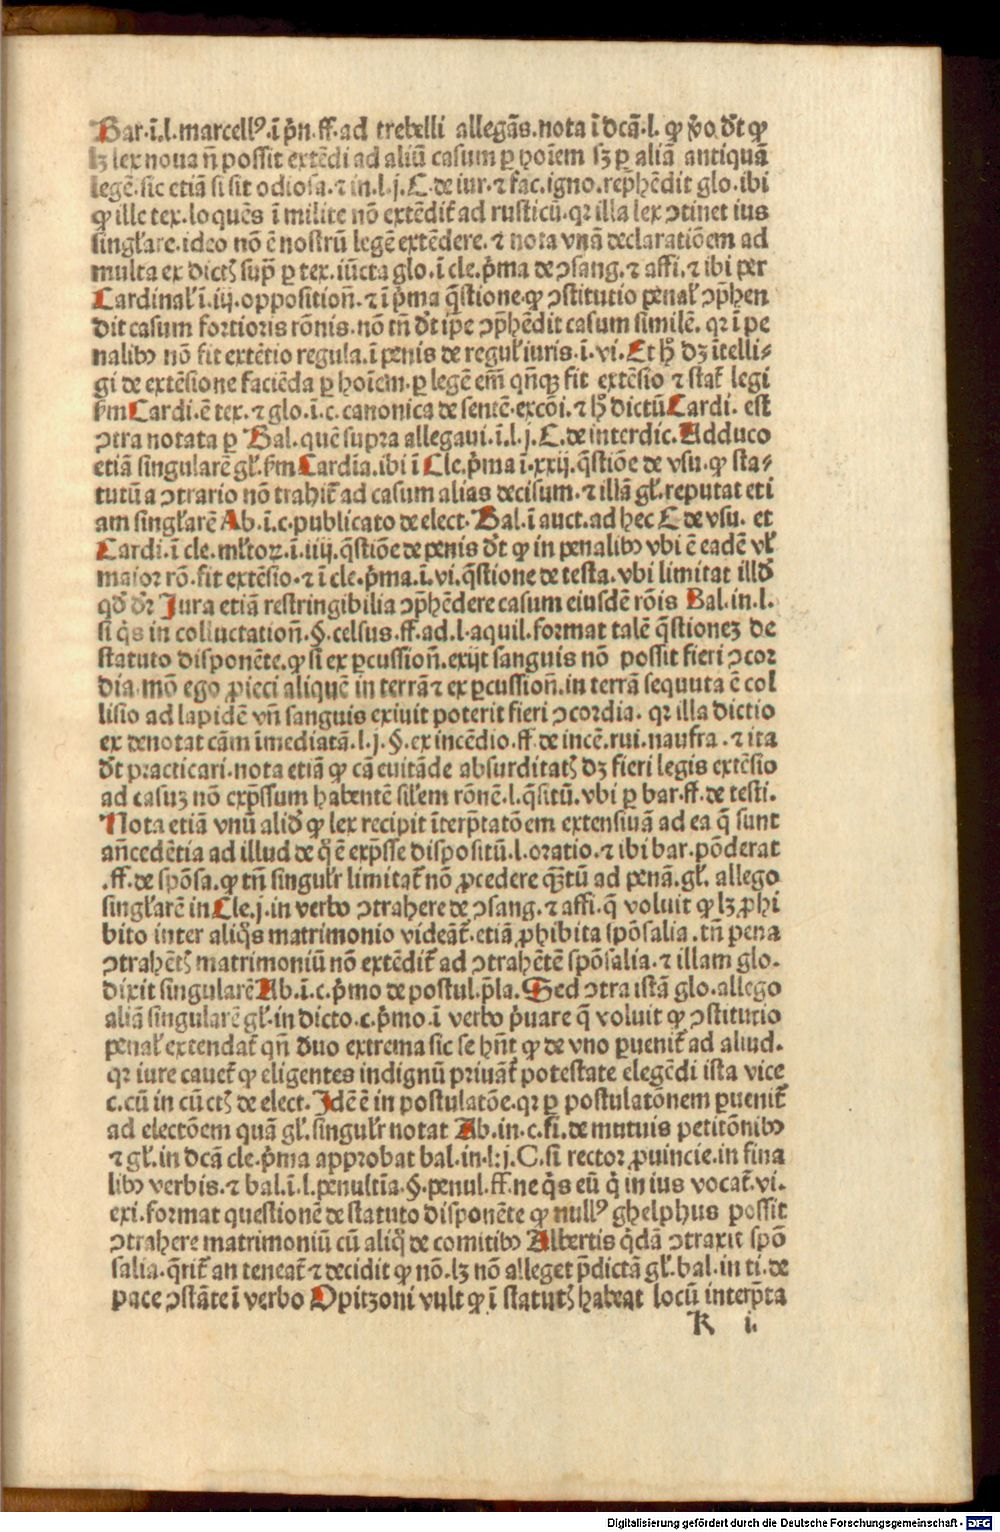 Bar.ī.l.marcellꝰ.ī p̄n.ff.ad trebelli allegās.nota ī dcā.l. ꝙ ꝟo.dt̄ ꝙ
lꝫ lex noua nō possit extēdi ad aliū casum ꝑ hoīem sꝫ ꝑ aliā antiquā
legē.sic etiā si sit odiosa.⁊ in.l.j.C.de iur.⁊ fac.igno.rep̄hēdit glo.ibi
ꝙ ille tex.loquēs ī milite nō extēdit̄ ad rusticū.qꝛ illa lex ↄtinet ius
singlare.ideo nō ē nostrū legē extēdere.⁊ nota vnā declaratiōem ad
multa ex dictꝭ sup̄ ꝑ tex.iūcta glo.ī cle.p̄ma de ↄsang.⁊ affi.⁊ ibi per
Cardinal ī.iij.oppositioñ.⁊ ī p̄ma q̄stione.ꝙ ↄstitutio penal ↄp̄hen
dit casum fortioris rōnis.nō tn̄ dt̄ ip̄e ↄp̄hēdit casum similē.qꝛ ī pe
nalibꝰ nō fit extētio regula.ī penis de regul iuris.ī.vi.Et h̄ dꝫ ītelli⸗
gi de extēsione faciēda ꝑ hoīem.ꝑ legē em̄ qn̄qꝫ fit extēsio ⁊ stat̄ legi
ẜm Cardi.ē tex.⁊ glo.ī.c.canonica de sentē.excōi.⁊ h̄ dictū Cardi. est
ↄtra notata ꝑ Bal.quē supra allegaui.ī.l.j.C.de interdic.Adduco
etiā singularē gl.ẜm Cardīa.ibi ī Cle.p̄ma ī.xxij.q̄stiōe de vsu.ꝙ sta⸗
tutū a ↄtrario nō trahit̄ ad casum alias decisum.⁊ illā gl.reputat eti
am singlarē Ab.ī.c.publicato de elect.Bal.ī auct.ad hec C de vsu. et
Cardi.ī cle.ml̄toꝝ.ī.iiij.q̄stiōe de penis dt̄ ꝙ in penalibꝰ vbi ē eadē vl
maior rō.fit extēsio.⁊ ī cle.p̄ma.ī.vi.q̄stione de testa.vbi limitat illd̄
qd̄ dr̄ Jura etiā restringibilia ↄp̄hēdere casum eiusdē rōis Bal.in.l.
si q̄s in colluctationñ.§.celsus.ff.ad.l.aquil.format talē q̄stionez de
statuto disponēte.ꝙ si ex ꝑcussioñ.exijt sanguis nō possit fieri ↄcor
dia.mō ego ꝓieci aliquē in terrā ⁊ ex ꝑcussioñ.in terrā sequuta ē col
lisio ad lapidē vn̄ sanguis exiuit poterit fieri ↄcordia. qꝛ illa dictio
ex denotat cām īmediatā.l.j.§.ex incēdio.ff.de incē.rui.naufra.⁊ ita
dt̄ practicari.nota etiā ꝙ cā euitāde absurditatꝭ dꝫ fieri legis extēsio
ad casuz nō exp̄ssum habentē silem rōnē.l.q̄situ.vbi ꝑ bar.ff.de testi.
Nota etiā vnū alid̄ ꝙ lex recipit īterp̄tatōem extensiuā ad ea q̄ sunt
an̄cedētia ad illud de q̄ ē exp̄sse dispositū.l.oratio.⁊ ibi bar.pōderat
.ff.de spōsa.ꝙ tn̄ singulr limitat̄ nō ꝓcedere qꝫtū ad penā.gl. allego
singlarē in Cle.j.in verbo ↄtrahere de ↄsang.⁊ affi.q̄ voluit ꝙ lꝫ ꝓhi
bito inter aliq̄s matrimonio videāt̄.etiā ꝓhibita spōsalia.tn̄ pena
ↄtrahētꝭ matrimoniū nō extēdit̄ ad ↄtrahētē spōsalia.⁊ illam glo.
dixit singularē Ab.ī.c.p̄mo de postul.p̄la.Sed ↄtra istā glo.allego
aliā singularē gl.in dicto.c.p̄mo.ī verbo p̄uare q̄ voluit ꝙ ↄstitutio
penal extendat̄ qn̄ duo extrema sic se hn̄t ꝙ de vno ꝑuenit̄ ad aliud.
qꝛ iure cauet̄ ꝙ eligentes indignū priuāt̄ potestate elegēdi ista vice
c.cū in cūctꝭ de elect.Idē ē in postulatōe.qꝛ ꝑ postulatōnem ꝑuenit̄
ad electōem quā gl.singulr notat Ab.in.c.fi.de mutuis petitōnibꝰ
⁊ gl.in dcā cle.p̄ma approbat bal.in.l.j.C.si rector ꝓuincie.in fina
libꝰ verbis.⁊ bal.ī.l.penultīa.§.penul.ff.ne q̄s eū q̄ in ius vocat̄.vi.
exi.format questionē de statuto disponēte ꝙ nullꝰ ghelphus possit
ↄtrahere matrimoniū cū aliq̄ de comitibꝰ Albertis q̄dā ↄtraxit spō
salia.q̄rit̄ an teneat̄ ⁊ decidit ꝙ nō.lꝫ nō alleget p̄dictā gl.bal.in ti.de
pace ↄstātē ī verbo Opitzoni vult ꝙ ī statutꝭ habeat locū interp̄ta
K i.
Digitalisierung gefördert durch die Deutsche Forschungsgemeinschaft - DFG